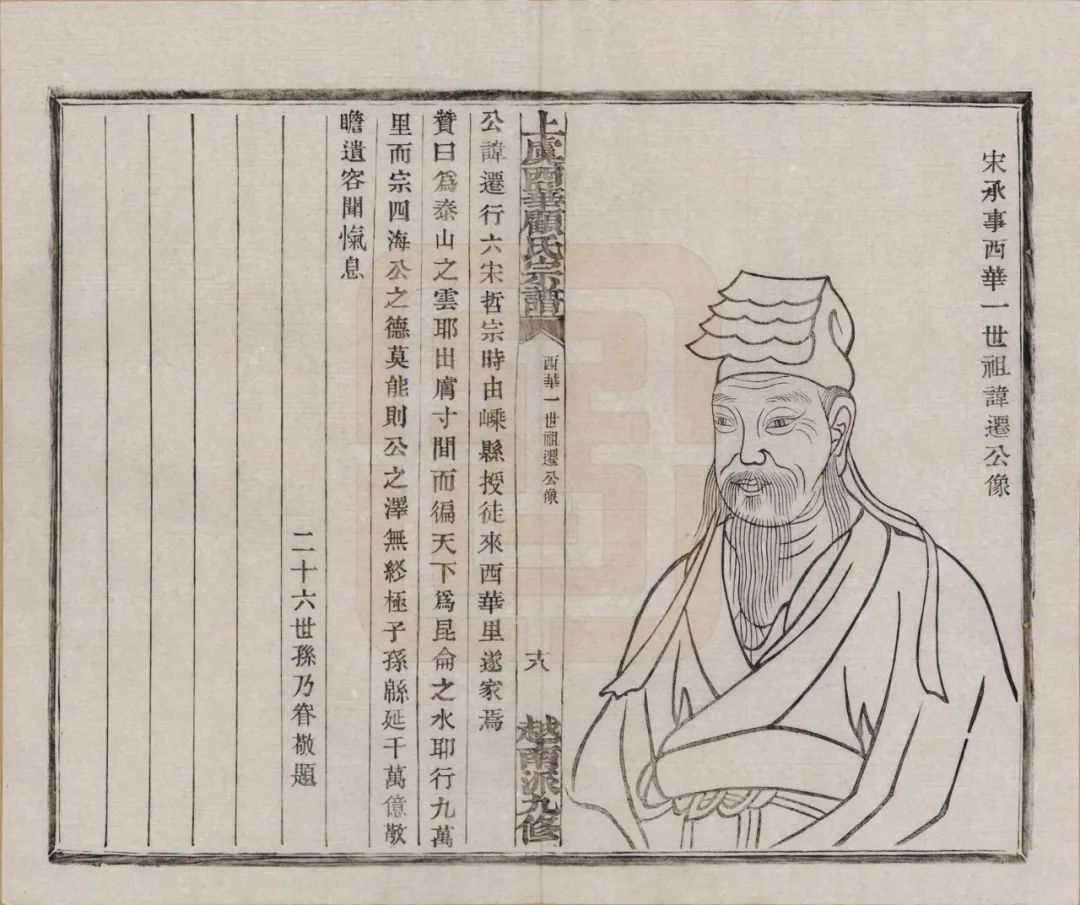 宋承事西華一世祖諱遷公像
上虞西華顧氏宗譜
西華一世祖遷公像
十八
越南派九修
公諱遷行六宋哲宗時由嵊縣授徒來西華里遂家焉
贊曰爲泰山之雲耶出膚寸間而徧天下爲昆侖之水耶行九萬
里而宗四海公之德莫能則公之澤無終極子孫緜延千萬億敬
瞻遺容聞愾息
二十六世孫乃眷敬題